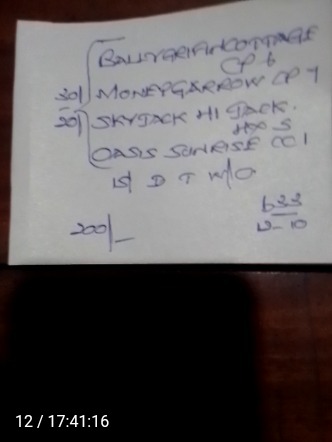 BALLYGRIFINCOTTAGE
CP 6
30/ MONEYGARROW CP 7
20/ SKYJACK HIJACK.
HX 5
OASIS SUNRISE CC 1
1st D T W/O
633
200/-
12-10
12 / 17:41:16